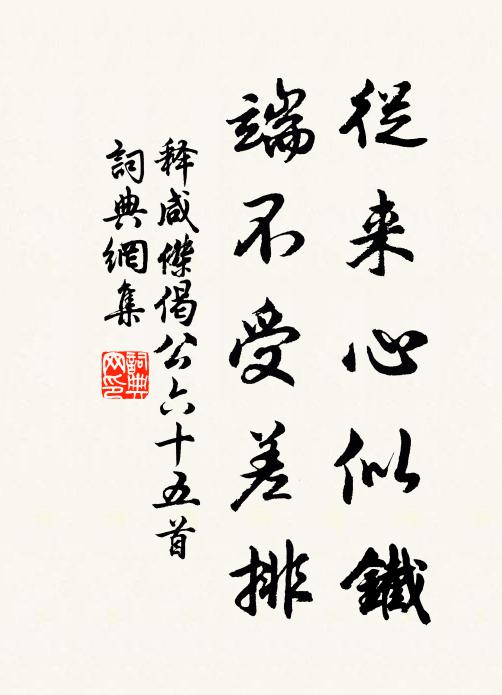 從来心似鐵
端不受差排
释咸傑偈公六十五首
詞典網集
詞典网印